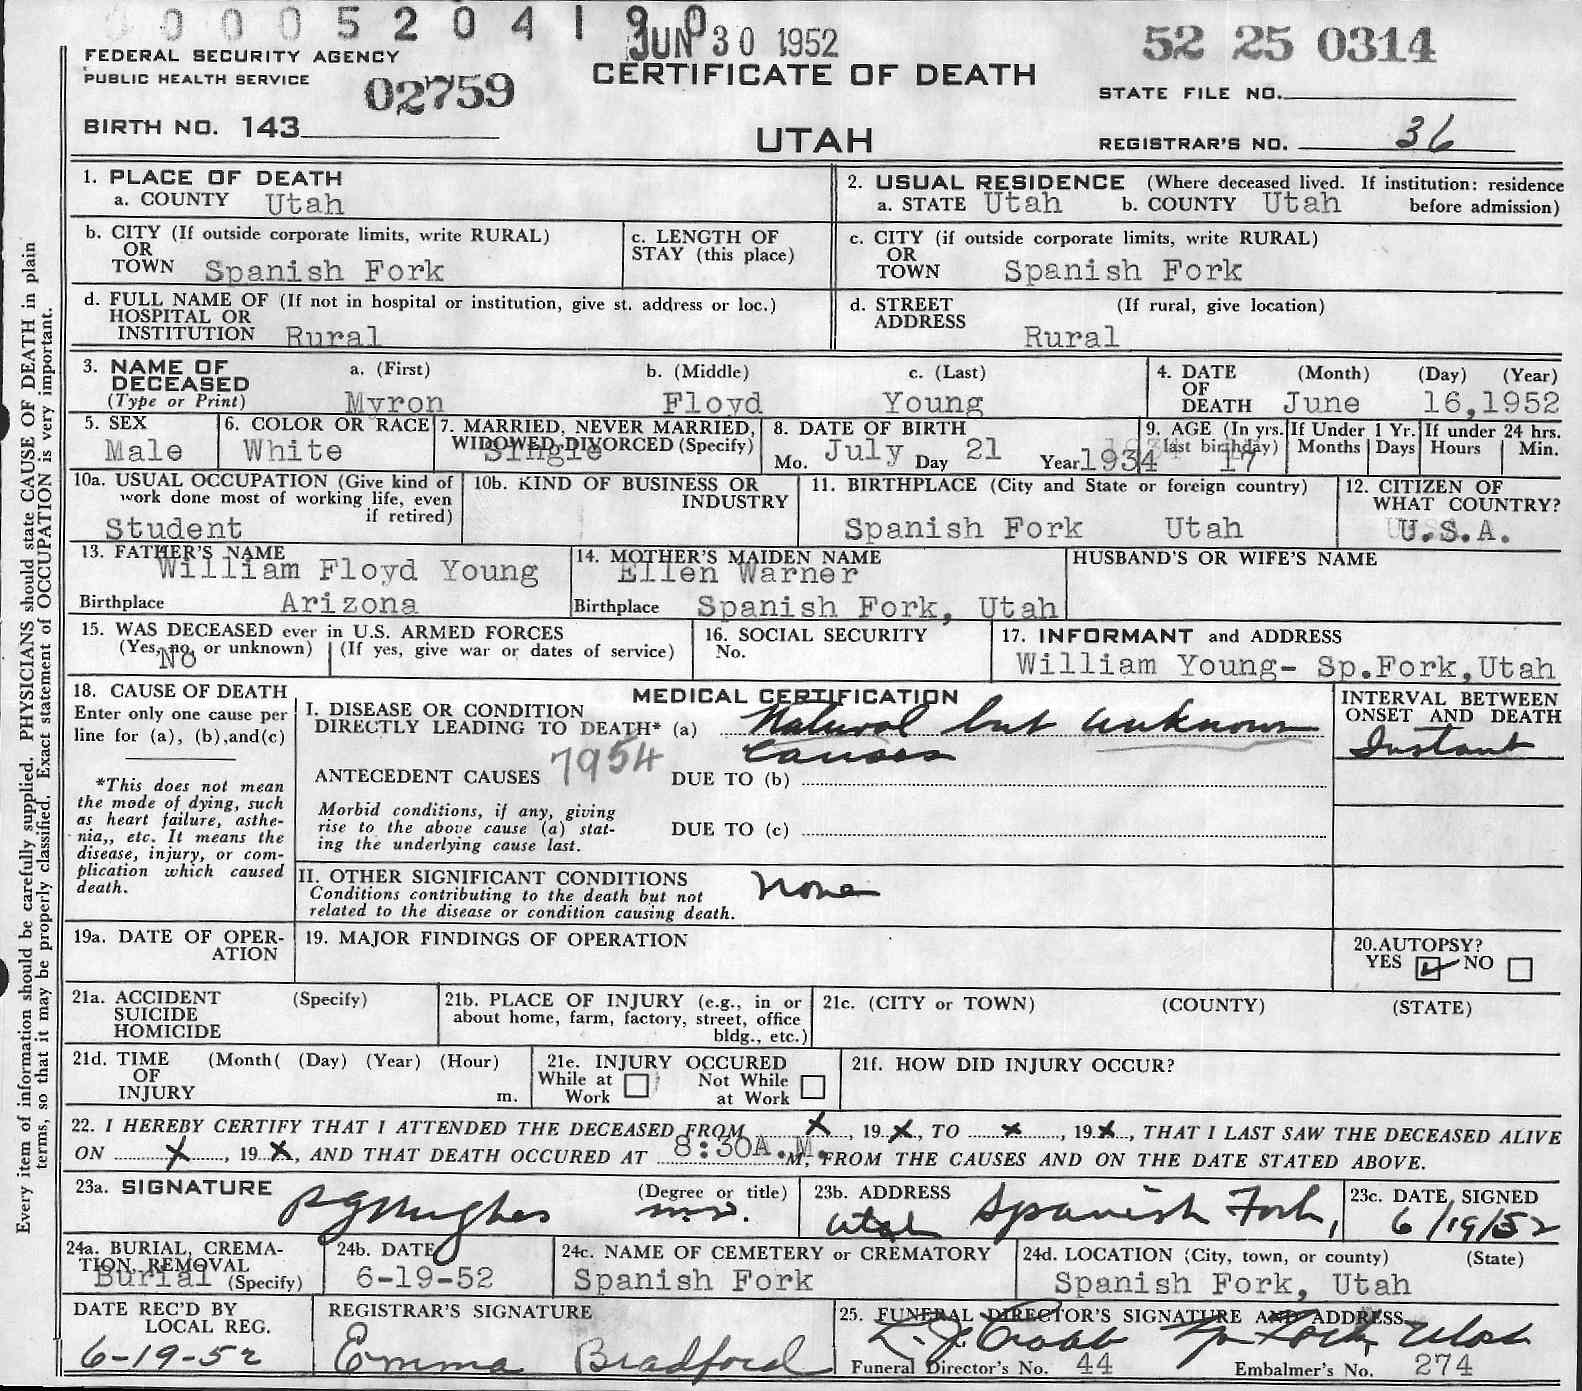 00052041 JUN 30 1952 52 25 0314
FEDERAL SECURITY AGENCY
PUBLIC HEALTH SERVICE 02759
CERTIFICATE OF DEATH
STATE FILE NO.
BIRTH NO. 143
UTAH
REGISTRAR'S NO. 36
1. PLACE OF DEATH
a. COUNTY Utah
2. USUAL RESIDENCE (Where deceased lived. If institution: residence
a. STATE Utah b. COUNTY Utah before admission)
b. CITY (If outside corporate limits, write RURAL)
OR
TOWN Spanish Fork
c. LENGTH OF
STAY (this place)
c. CITY (if outside corporate limits, write RURAL)
OR
TOWN Spanish Fork
d. FULL NAME OF (If not in hospital or institution, give st. address or loc.)
HOSPITAL OR
INSTITUTION Rural
d. STREET (If rural, give location)
ADDRESS Rural
3. NAME OF a. (First) b. (Middle) c. (Last)
DECEASED
(Type or Print) Myron Floyd Young
4. DATE (Month) (Day) (Year)
OF
DEATH June 16,1952
5. SEX
Male
6. COLOR OR RACE
White
7. MARRIED, NEVER MARRIED,
WIDOWED, DIVORCED (Specify)
Single
8. DATE OF BIRTH
Mo. July Day 21 Year 1934
9. AGE (In yrs.
last birthday)
17
If Under 1 Yr.
Months Days
If under 24 hrs.
Hours Min.
10a. USUAL OCCUPATION (Give kind of
work done most of working life, even
if retired)
Student
10b. KIND OF BUSINESS OR
INDUSTRY
11. BIRTHPLACE (City and State or foreign country)
Spanish Fork Utah
12. CITIZEN OF
WHAT COUNTRY?
U.S.A.
13. FATHER'S NAME
William Floyd Young
Birthplace Arizona
14. MOTHER'S MAIDEN NAME
Ellen Warner
Birthplace Spanish Fork, Utah
HUSBAND'S OR WIFE'S NAME
15. WAS DECEASED ever in U.S. ARMED FORCES
(Yes, no, or unknown) (If yes, give war or dates of service)
No
16. SOCIAL SECURITY
No.
17. INFORMANT and ADDRESS
William Young- Sp.Fork,Utah
18. CAUSE OF DEATH
Enter only one cause per
line for (a), (b),and(c)
*This does not mean
the mode of dying, such
as heart failure, asthe-
nia,, etc. It means the
disease, injury, or com-
plication which caused
death.
MEDICAL CERTIFICATION
I. DISEASE OR CONDITION
DIRECTLY LEADING TO DEATH* (a) Natural but unknown
causes
7954
ANTECEDENT CAUSES DUE TO (b)
Morbid conditions, if any, giving
rise to the above cause (a) stat-
ing the underlying cause last.
DUE TO (c)
II. OTHER SIGNIFICANT CONDITIONS none
Conditions contributing to the death but not
related to the disease or condition causing death.
INTERVAL BETWEEN
ONSET AND DEATH
Instant
19a. DATE OF OPER-
ATION
19. MAJOR FINDINGS OF OPERATION
20.AUTOPSY?
YES NO
21a. ACCIDENT (Specify)
SUICIDE
HOMICIDE
21b. PLACE OF INJURY (e.g., in or
about home, farm, factory, street, office
bldg., etc.)
21c. (CITY or TOWN) (COUNTY) (STATE)
21d. TIME (Month( (Day) (Year) (Hour)
OF
INJURY m.
21e. INJURY OCCURED
While at Not While
Work at Work
21f. HOW DID INJURY OCCUR?
22. I HEREBY CERTIFY THAT I ATTENDED THE DECEASED FROM X, 19X, TO X, 19X, THAT I LAST SAW THE DECEASED ALIVE
ON X, 19X, AND THAT DEATH OCCURED AT 8:30A.M. M, FROM THE CAUSES AND ON THE DATE STATED ABOVE.
23a. SIGNATURE (Degree or title)
Hughes M.D.
23b. ADDRESS Spanish Fork,
Utah
23c. DATE SIGNED
6/19/52
24a. BURIAL, CREMA-
TION, REMOVAL
Burial (Specify)
24b. DATE
6-19-52
24c. NAME OF CEMETERY or CREMATORY
Spanish Fork
24d. LOCATION (City, town, or county) (State)
Spanish Fork, Utah
DATE REC'D BY
LOCAL REG.
6-19-52
REGISTRAR'S SIGNATURE
Emma Bradford
25. FUNERAL DIRECTOR'S SIGNATURE AND ADDRESS
Fork, Utah
Funeral Director's No. 44 Embalmer's No. 274
Every item of information should be carefully supplied. PHYSICIANS should state CAUSE OF DEATH in plain
terms, so that it may be properly classified. Exact statement of OCCUPATION is very important.